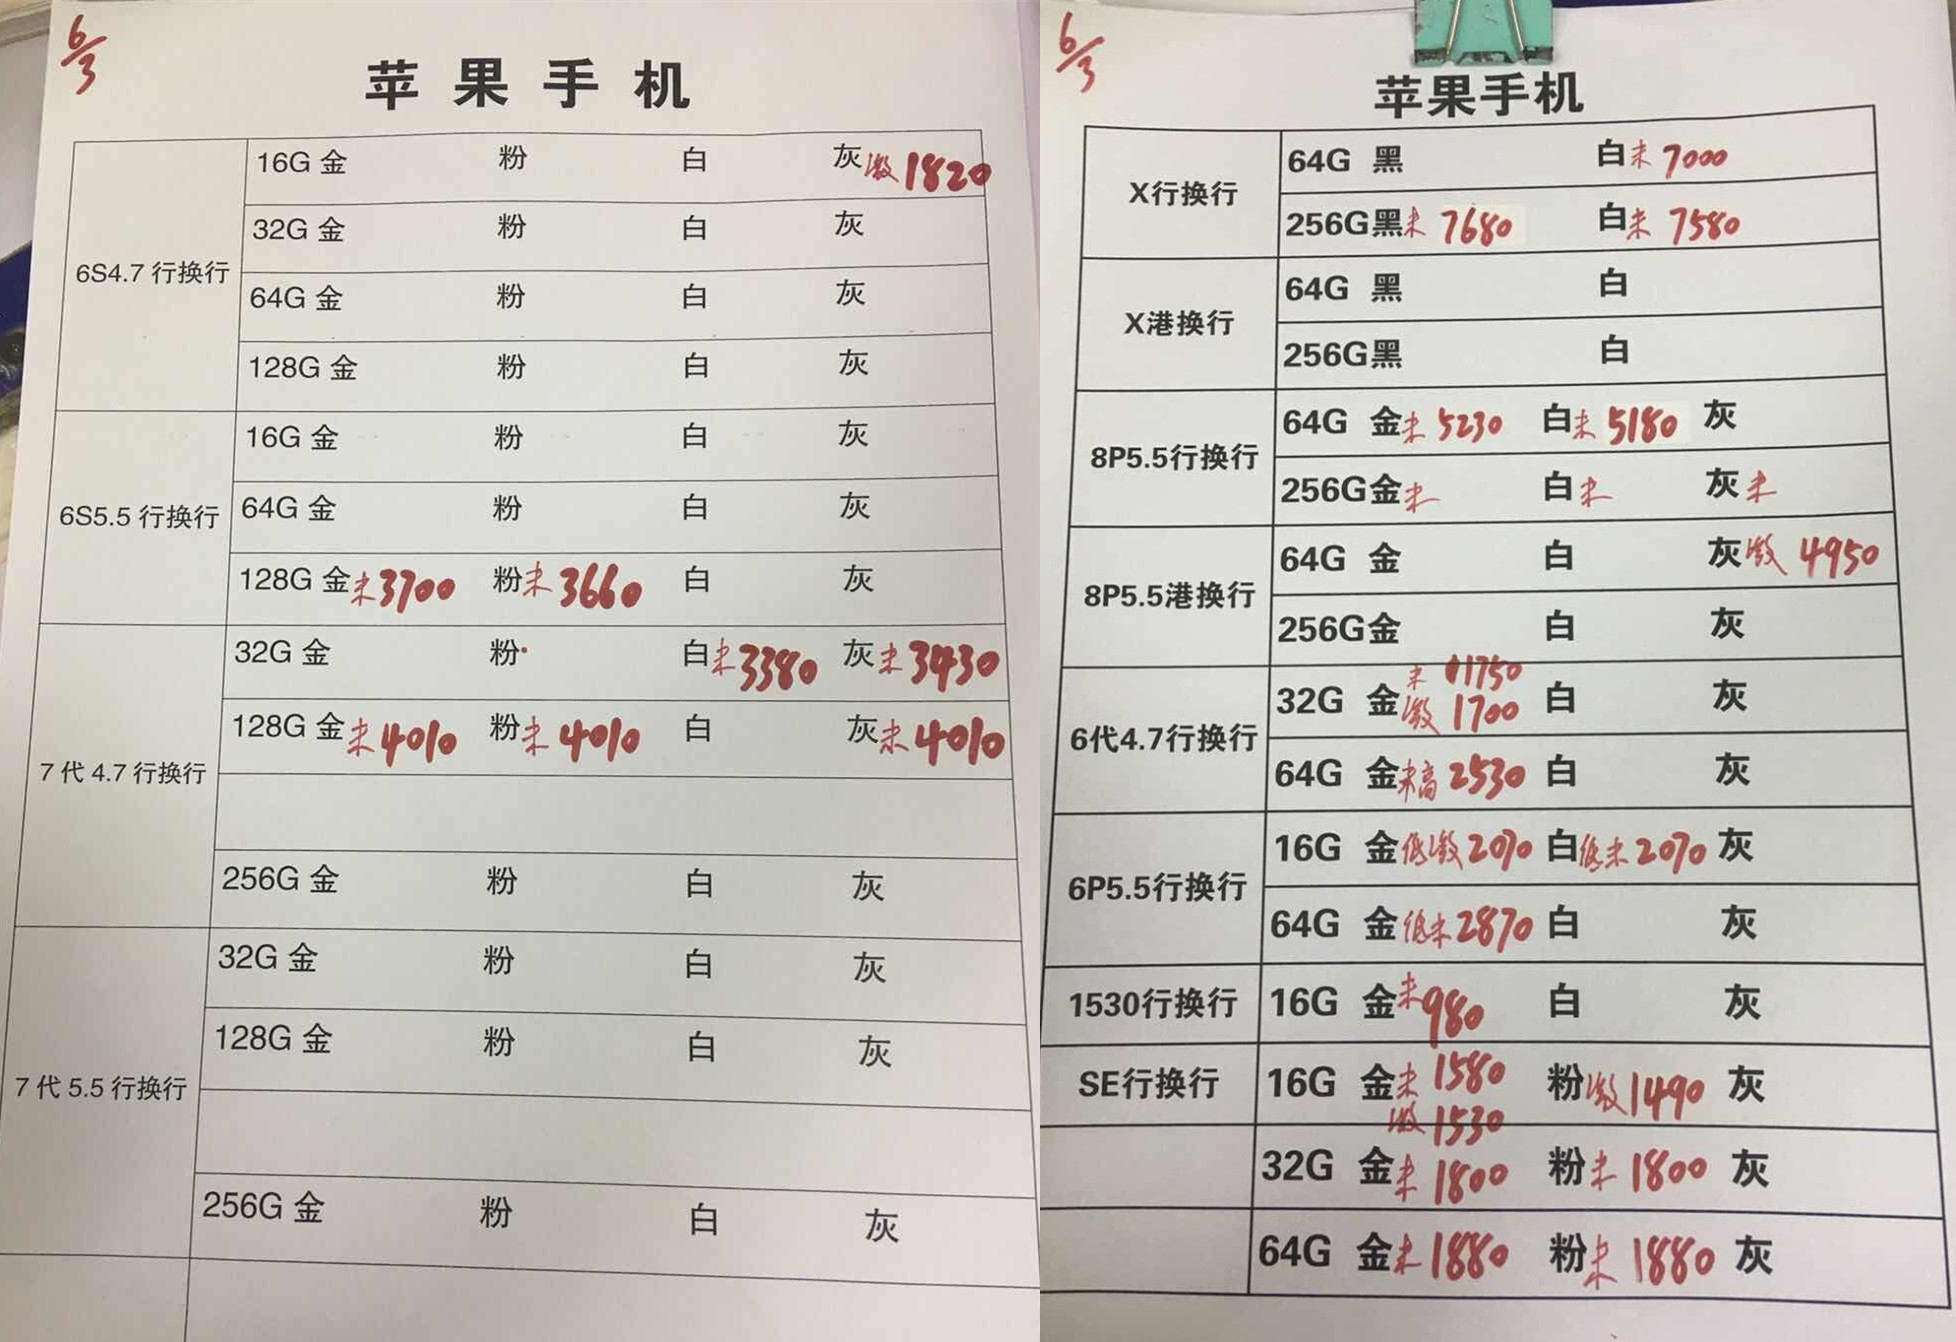 6/3
苹果手机
6S4.7行换行
16G金 粉 白 灰激1820
32G金 粉 白 灰
64G金 粉 白 灰
128G金 粉 白 灰
6S5.5行换行
16G金 粉 白 灰
64G金 粉 白 灰
128G金未3700 粉未3660 白 灰
7代4.7行换行
32G金 粉 白未3380 灰未3430
128G金未4010 粉未4010 白 灰未4010
256G金 粉 白 灰
7代5.5行换行
32G金 粉 白 灰
128G金 粉 白 灰
256G金 粉 白 灰
6/3
苹果手机
X行换行
64G 黑 白未7000
256G黑未7680 白未7580
X港换行
64G 黑 白
256G黑 白
8P5.5行换行
64G 金未5230 白未5180 灰
256G金未 白未 灰未
8P5.5港换行
64G 金 白 灰激4950
256G金 白 灰
6代4.7行换行
未1750
32G 金激1700 白 灰
64G 金未高2530 白 灰
6P5.5行换行
16G 金低激2070 白低未2070 灰
64G 金低未2870 白 灰
1530行换行
16G 金未980 白 灰
SE行换行
16G 金未1580 粉激1490 灰
激1530
32G 金未1800 粉未1800 灰
64G 金未1880 粉未1880 灰